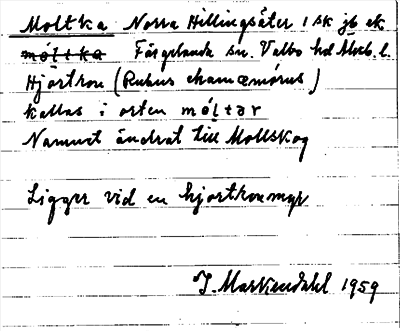 Moltka Norra Hillingsäter 1 sk jb ek
móltka Färgelanda sn. Valbo hd Älvsb. l.
Hjortron (Rubus chamæmorus)
kallas i orten móltər
Namnet ändrat till Mollskog
Ligger vid en hjortronmyr
J. Markendahl 1959